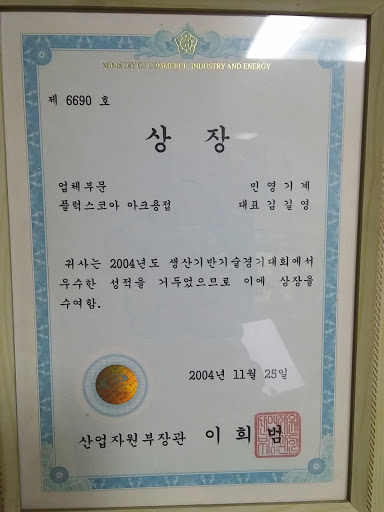 MINISTRY OF COMMERCE, INDUSTRY AND ENERGY
제 6690 호
상 장
업체부문 민영기계
플럭스코아 아크용접 대표 김길영
귀사는 2004년도 생산기반기술경기대회에서
우수한 성적을 거두었으므로 이에 상장을
수여함.
2004년 11월 25일
산업자원부장관 이희범